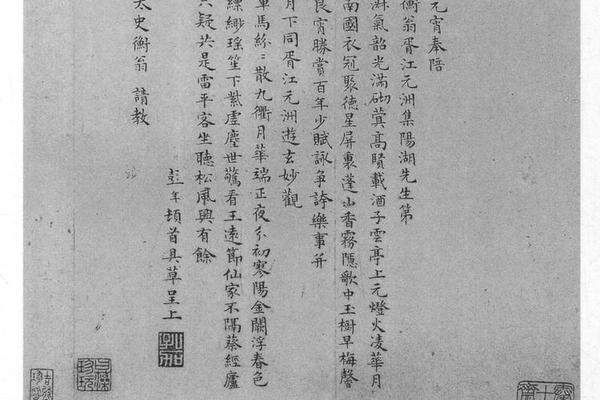 元宵奉陪
衡翁胥江元洲集陽湖先生第
淑氣韶光滿砌蓂高賢載酒子雲亭上元燈火凌華月
南國衣冠聚德星屏裏蓬山香霧隱歌中玉樹早梅馨
良宵勝賞百年少賦詠爭誇樂事并
月下同胥江元洲遊玄妙觀
車馬紛〻散九衢月華端正夜分初寥陽金闕浮春色
縹緲瑤笙下紫虛塵世驚看王遠節仙家不隔蔡經廬
只疑共是雷平客坐聽松風興有餘
彭年頓首具草呈上
太史衡翁 請教